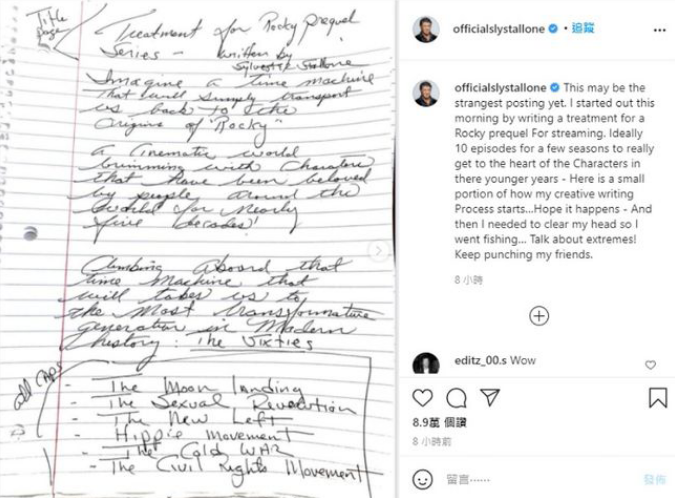 Title
page
Treatment for Rocky prequel
Series - written by
Sylvester Stallone
Imagine a time machine
that will simply transport
us back to the
Origins of "Rocky"
a Cinematic world
brimming with Characters
that have been beloved
by people around the
World for Nearly
five decades!
Climbing Aboard that
time Machine that
will takes us to
the Most transformative
generation in Modern
history: The Sixties
add clips
- The Moon landing
- The Sexual Revolution
- The New Left
- Hippie Movement
- The Cold WAR
- The Civil Rights Movement
officialslystallone • 追蹤
officialslystallone This may be the
strangest posting yet. I started out this
morning by writing a treatment for a
Rocky prequel For streaming. Ideally
10 episodes for a few seasons to really
get to the heart of the Characters in
there younger years - Here is a small
portion of how my creative writing
Process starts...Hope it happens - And
then I needed to clear my head so I
went fishing... Talk about extremes!
Keep punching my friends.
8 小時
editz_00.s Wow
8.9萬 個讚
8 小時前
留言......
發佈